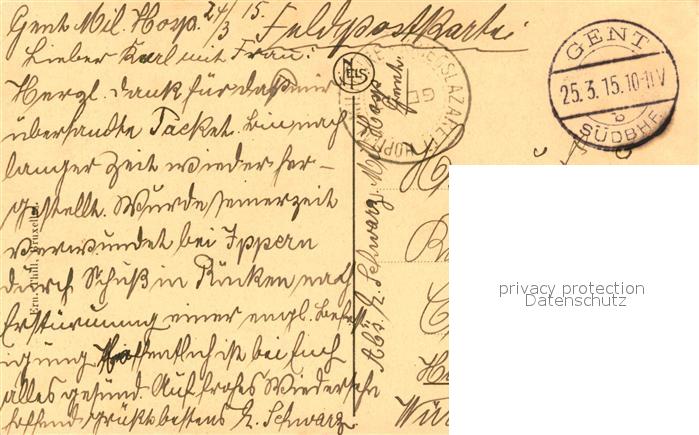 Gent Mil. Hosp. 24/3 15.
Feldpostkarte.
Lieber Karl mit Frau!
Herzl. Dank für das mir
übersandte Packet. Bin nach
langer Zeit wieder her-
gestellt. Wurde seinerzeit
verwundet bei Ippern
durch Schuß in Rücken nach
Erstürmung einer engl. Befest-
igung. Hoffentlich ist bei Euch
alles gesund. Auf frohes Wiedersehn
hoffend grüßt bestens H. Schwarz.
NELS
Abs. H. Schwarz. Mil. Hosp
Gent.
GENT
25.3.15.10-11V
b
SÜDBHF.
Ern. Thill, Bruxelles.
privacy protection
Datenschutz